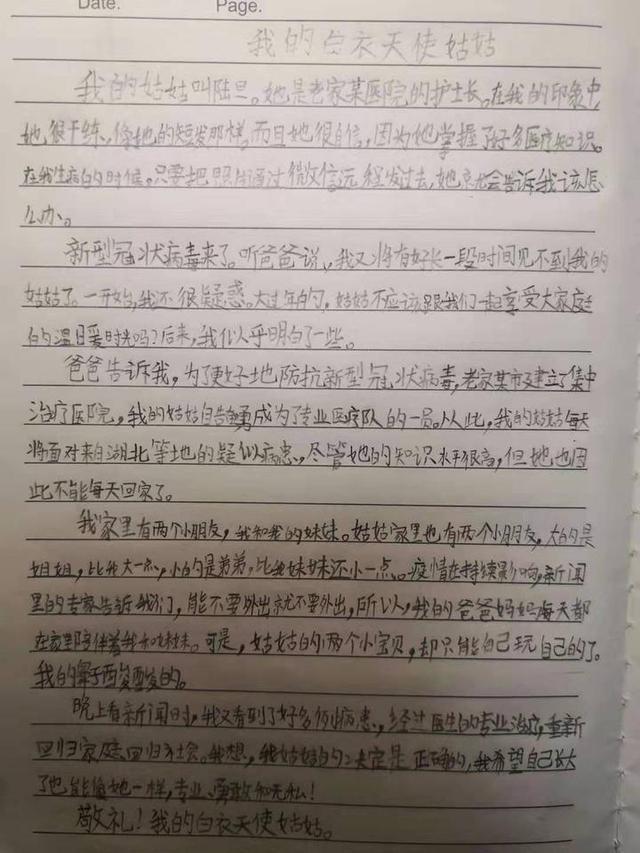 Date.    Page.
我的白衣天使姑姑
我的姑姑叫陆旦。她是老家某医院的护士长。在我的印象中
她很干练、像她的短发那样。而且她很自信,因为她掌握了好多医疗知识。
在我生病的时候,只要把照片通过微信远程发过去,她就会告诉我该怎
么办。
新型冠状病毒来了。听爸爸说,我又将有好长一段时间见不到我的
姑姑了。一开始,我还很疑惑。大过年的,姑姑不应该跟我们一起享受大家庭
的温暖时光吗?后来,我似乎明白了一些。
爸爸告诉我,为了更好地防抗新型冠状病毒,老家某市建立了集中
治疗医院,我的姑姑自告奋勇成为了专业医疗队的一员。从此,我的姑姑每天
将面对来自湖北等地的疑似病患、尽管她的知识水平很高,但她也因
此不能每天回家了。
我家里有两个小朋友,我和我的妹妹。姑姑家里也有两个小朋友,大的是
姐姐,比我大一点,小的是弟弟,比我妹妹还小一点。疫情在持续影响,新闻
里的专家告诉我们,能不要外出就不要外出,所以,我的爸爸妈妈每天都
在家里陪伴着我和妹妹。可是,姑姑的两个小宝贝,却只能自己玩自己的了。
我的鼻子酸酸的。
晚上看新闻时,我又看到了好多例病患、经过医生的专业治疗,重新
回归家庭、回归社会。我想,我姑姑的决定是正确的,我希望自己长大
了也能像她一样,专业、勇敢和无私!
敬礼!我的白衣天使姑姑。